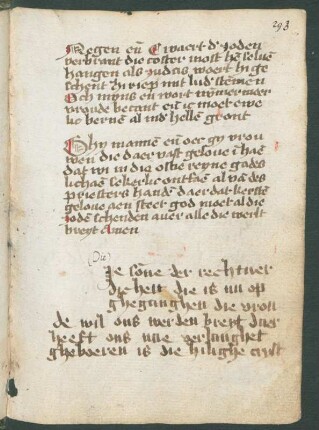 293
Degen eñ Ewaert d' Joden
verbrant die coster most hē seluē
hangen als Judas waert hi ge
schent Hi riep mit lud' stēmē
Och myns en wort nūmermeer
vroude becant eñ ic moet ewe
lic bernē al in d' hellē gront
Ghy mannē eñ oec gy vrou
wen die daer vast geloue ī haē
dat wi in die ostie reyne gades
lichaē sekerlic ontfaē al vā des
priesters handē daer dat kerstē
geloue aen steet god moet al die
iodē schenden auer alle die werlt
breyt Amen
(Die)
Je sōne der rechtuer
dicheit die is nu op
gheganghen die vrou
de wil ons werden breyt daer
heeft ons nae verlanghet
gheboeren is die hilighe crist